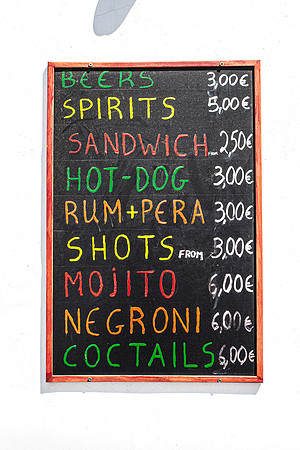 BEERS 3,00€
SPIRITS 5,00€
SANDWICH FROM 2,50€
HOT-DOG 3,00€
RUM+PERA 3,00€
SHOTS FROM 3,00€
MOJITO 6,00€
NEGRONI 6,00€
COCTAILS 6,00€